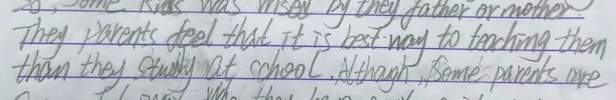 20, some kids was rised by they father or mother.
They parents feel that it is best way to teaching them
than they study at school. Although, some parents are